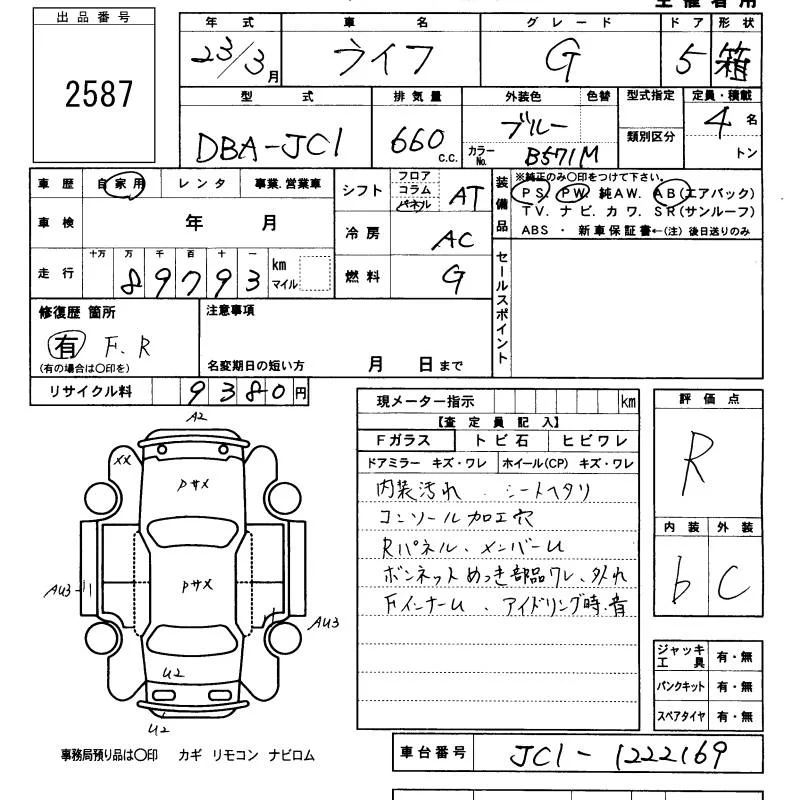 出品番号
2587
年式 車名 グレード ドア 形状
23/3月 ライフ G 5 箱
型式 排気量 外装色 色替 型式指定 定員・積載
DBA-JC1 660 c.c. ブルー カラーNo. B571M 類別区分 4名 トン
車歴 自家用 レンタ 事業.営業車
車検 年 月
走行 十万 万 千 百 十 一
89793 km マイル
シフト フロア コラム パネル AT
冷房 AC
燃料 G
装備品 ※純正のみ〇印をつけて下さい。
PS PW 純AW. AB(エアバック)
TV. ナビ. カワ. SR(サンルーフ)
ABS ・ 新車保証書←(注) 後日送りのみ
セールスポイント
修復歴 箇所
有 F. R
(有の場合は〇印を)
注意事項
名変期日の短い方 月 日まで
リサイクル料 9380円
現メーター指示 km
【査定員記入】
Fガラス トビ石 ヒビワレ
ドアミラー キズ・ワレ ホイール(CP) キズ・ワレ
内装汚れ . シートヘタリ
コンソール加工穴
Rパネル、メンバーU
ボンネットめっき部品ワレ、外れ
FインナーU 、アイドリング時.音
評価点
R
内装 外装
b C
ジャッキ工具 有・無
パンクキット 有・無
スペアタイヤ 有・無
A2
XX
Pサメ
Pサメ
AU3
AU3
U2
U2
事務局預り品は〇印 カギ リモコン ナビロム
車台番号 JC1-1222169